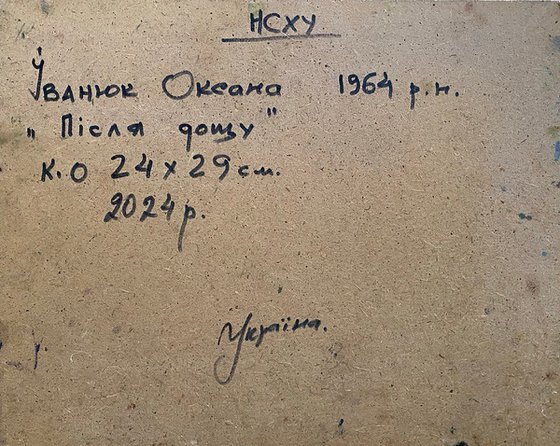 НСХУ
Іванюк Оксана 1964 р.н.
„Після дощу"
К.О 24 х 29 см.
2024 р.
Україна.